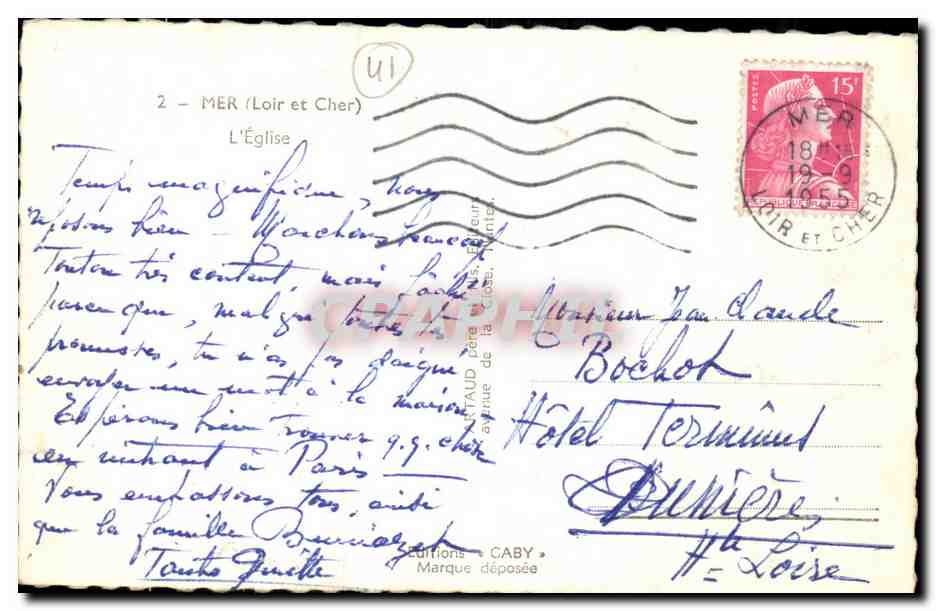 41
2 - MER (Loir et Cher)
L'Église
POSTES
15F
RÉPUBLIQUE FRANÇAISE
MER
18H
19-9
1955
LOIR ET CHER
Temps magnifique, nous
reposons bien - Marchons beaucoup
Tonton très content, mais fâché
parce que, malgré toutes tes
promesses, tu n'as pas daigné
envoyer un mot à la maison
Espérons bien trouver q.q. chose
en rentrant à Paris -
Vous embrassons tous, ainsi
que la famille
ARTAUD père et fils, Éditeurs
avenue de la Close, Nantes.
CPAPHIL
Monsieur Jean Claude
Bochot
Hôtel Terminus
Dunières
Hte Loire
Éditions « GABY »
Marque déposée